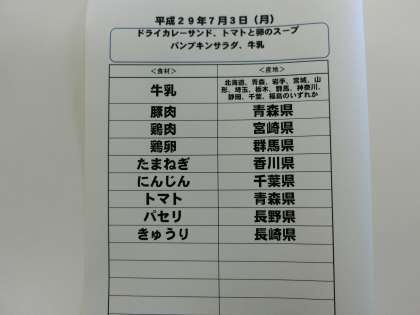 平成29年7月3日（月）
ドライカレーサンド、トマトと卵のスープ
パンプキンサラダ、牛乳
＜食材＞ ＜産地＞
牛乳 北海道、青森、岩手、宮城、山形、埼玉、栃木、群馬、神奈川、静岡、千葉、福島のいずれか
豚肉 青森県
鶏肉 宮崎県
鶏卵 群馬県
たまねぎ 香川県
にんじん 千葉県
トマト 青森県
パセリ 長野県
きゅうり 長崎県